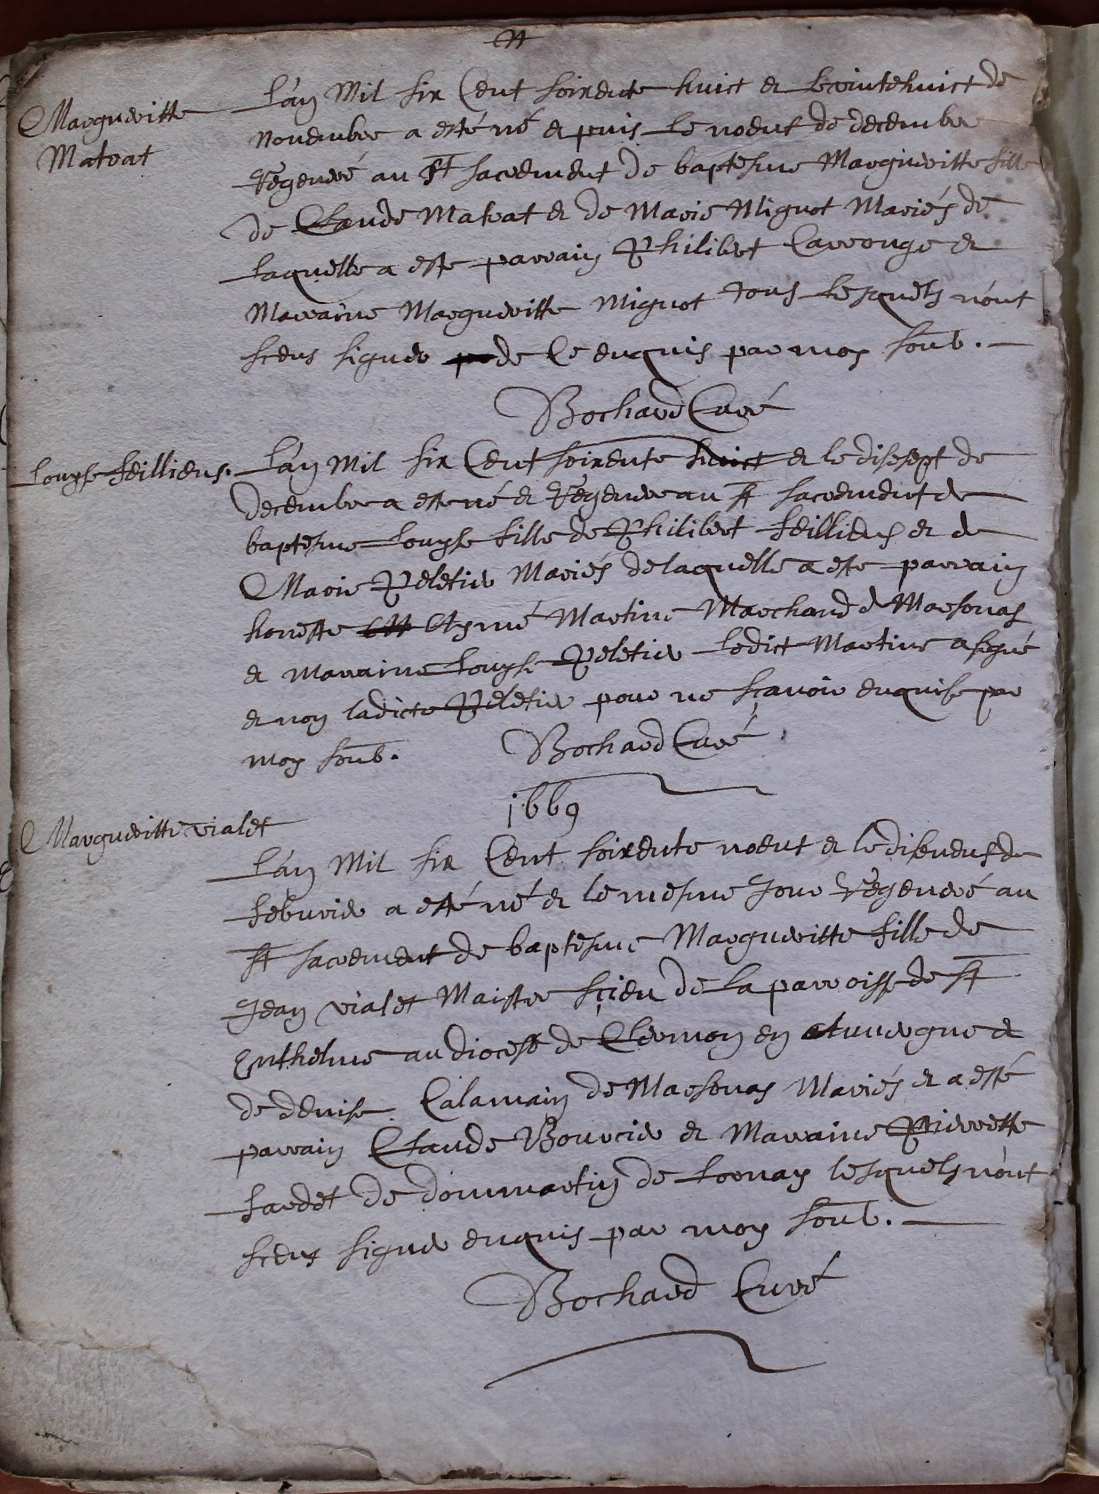 Margueritte
Matrat
L'an Mil six Cent soixente huict et le vintehuict de
Novembre a esté né et puis le noeut de decembre
regeneré au St sacrement de baptesme Margueritte fille
de Claude Matrat et de Marie Mignot Mariés de
laquelle a este parrain Philibert Carrouge et
Marraine Margueritte Mignot tous lesquels n'ont
sceus signer de ce enquis par moy soub.
Bochard Curé
Louyse feilliens.
L'an Mil six Cent soixente huict et le disesept de
decembre a este né et regenere au St sacrement de
baptesme Louyse fille de Philibert feilliens et de
Marie Peletier Mariés de laquelle a este parrain
honeste Aymé Martine Marchand de Marsonas
et marraine Louyse Peletier ledict Martine a signé
et non ladicte Peletier pour ne sçavoir enquise par
moy soub. Bochard Curé
1669
Margueritte vialet
L'an Mil six Cent soixente noeut et le diseneuf de
feburier a esté né et le mesme Jour regeneré au
St sacrement de baptesme Margueritte fille de
Jean vialet Maistre scieu de la parroisse de St
Enthelme au diocese de Clermon en Auvergne et
de denise Calamain de Marsonas Mariés et a esté
parrain Claude Bourcier et Marraine Pierrette
fardet de dommartin de Lornay lesquels n'ont
sceus signer enquis par moy soub.
Bochard Curé